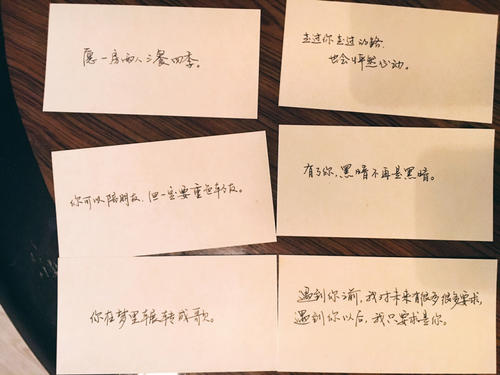 愿一房两人三餐四季。
走过你走过的路,
也会怦然心动。
你可以陪朋友,但一定要重色轻友。
有了你,黑暗不再是黑暗。
你在梦里辗转成歌。
遇到你之前,我对未来有很多很多要求,
遇到你以后,我只要求是你。